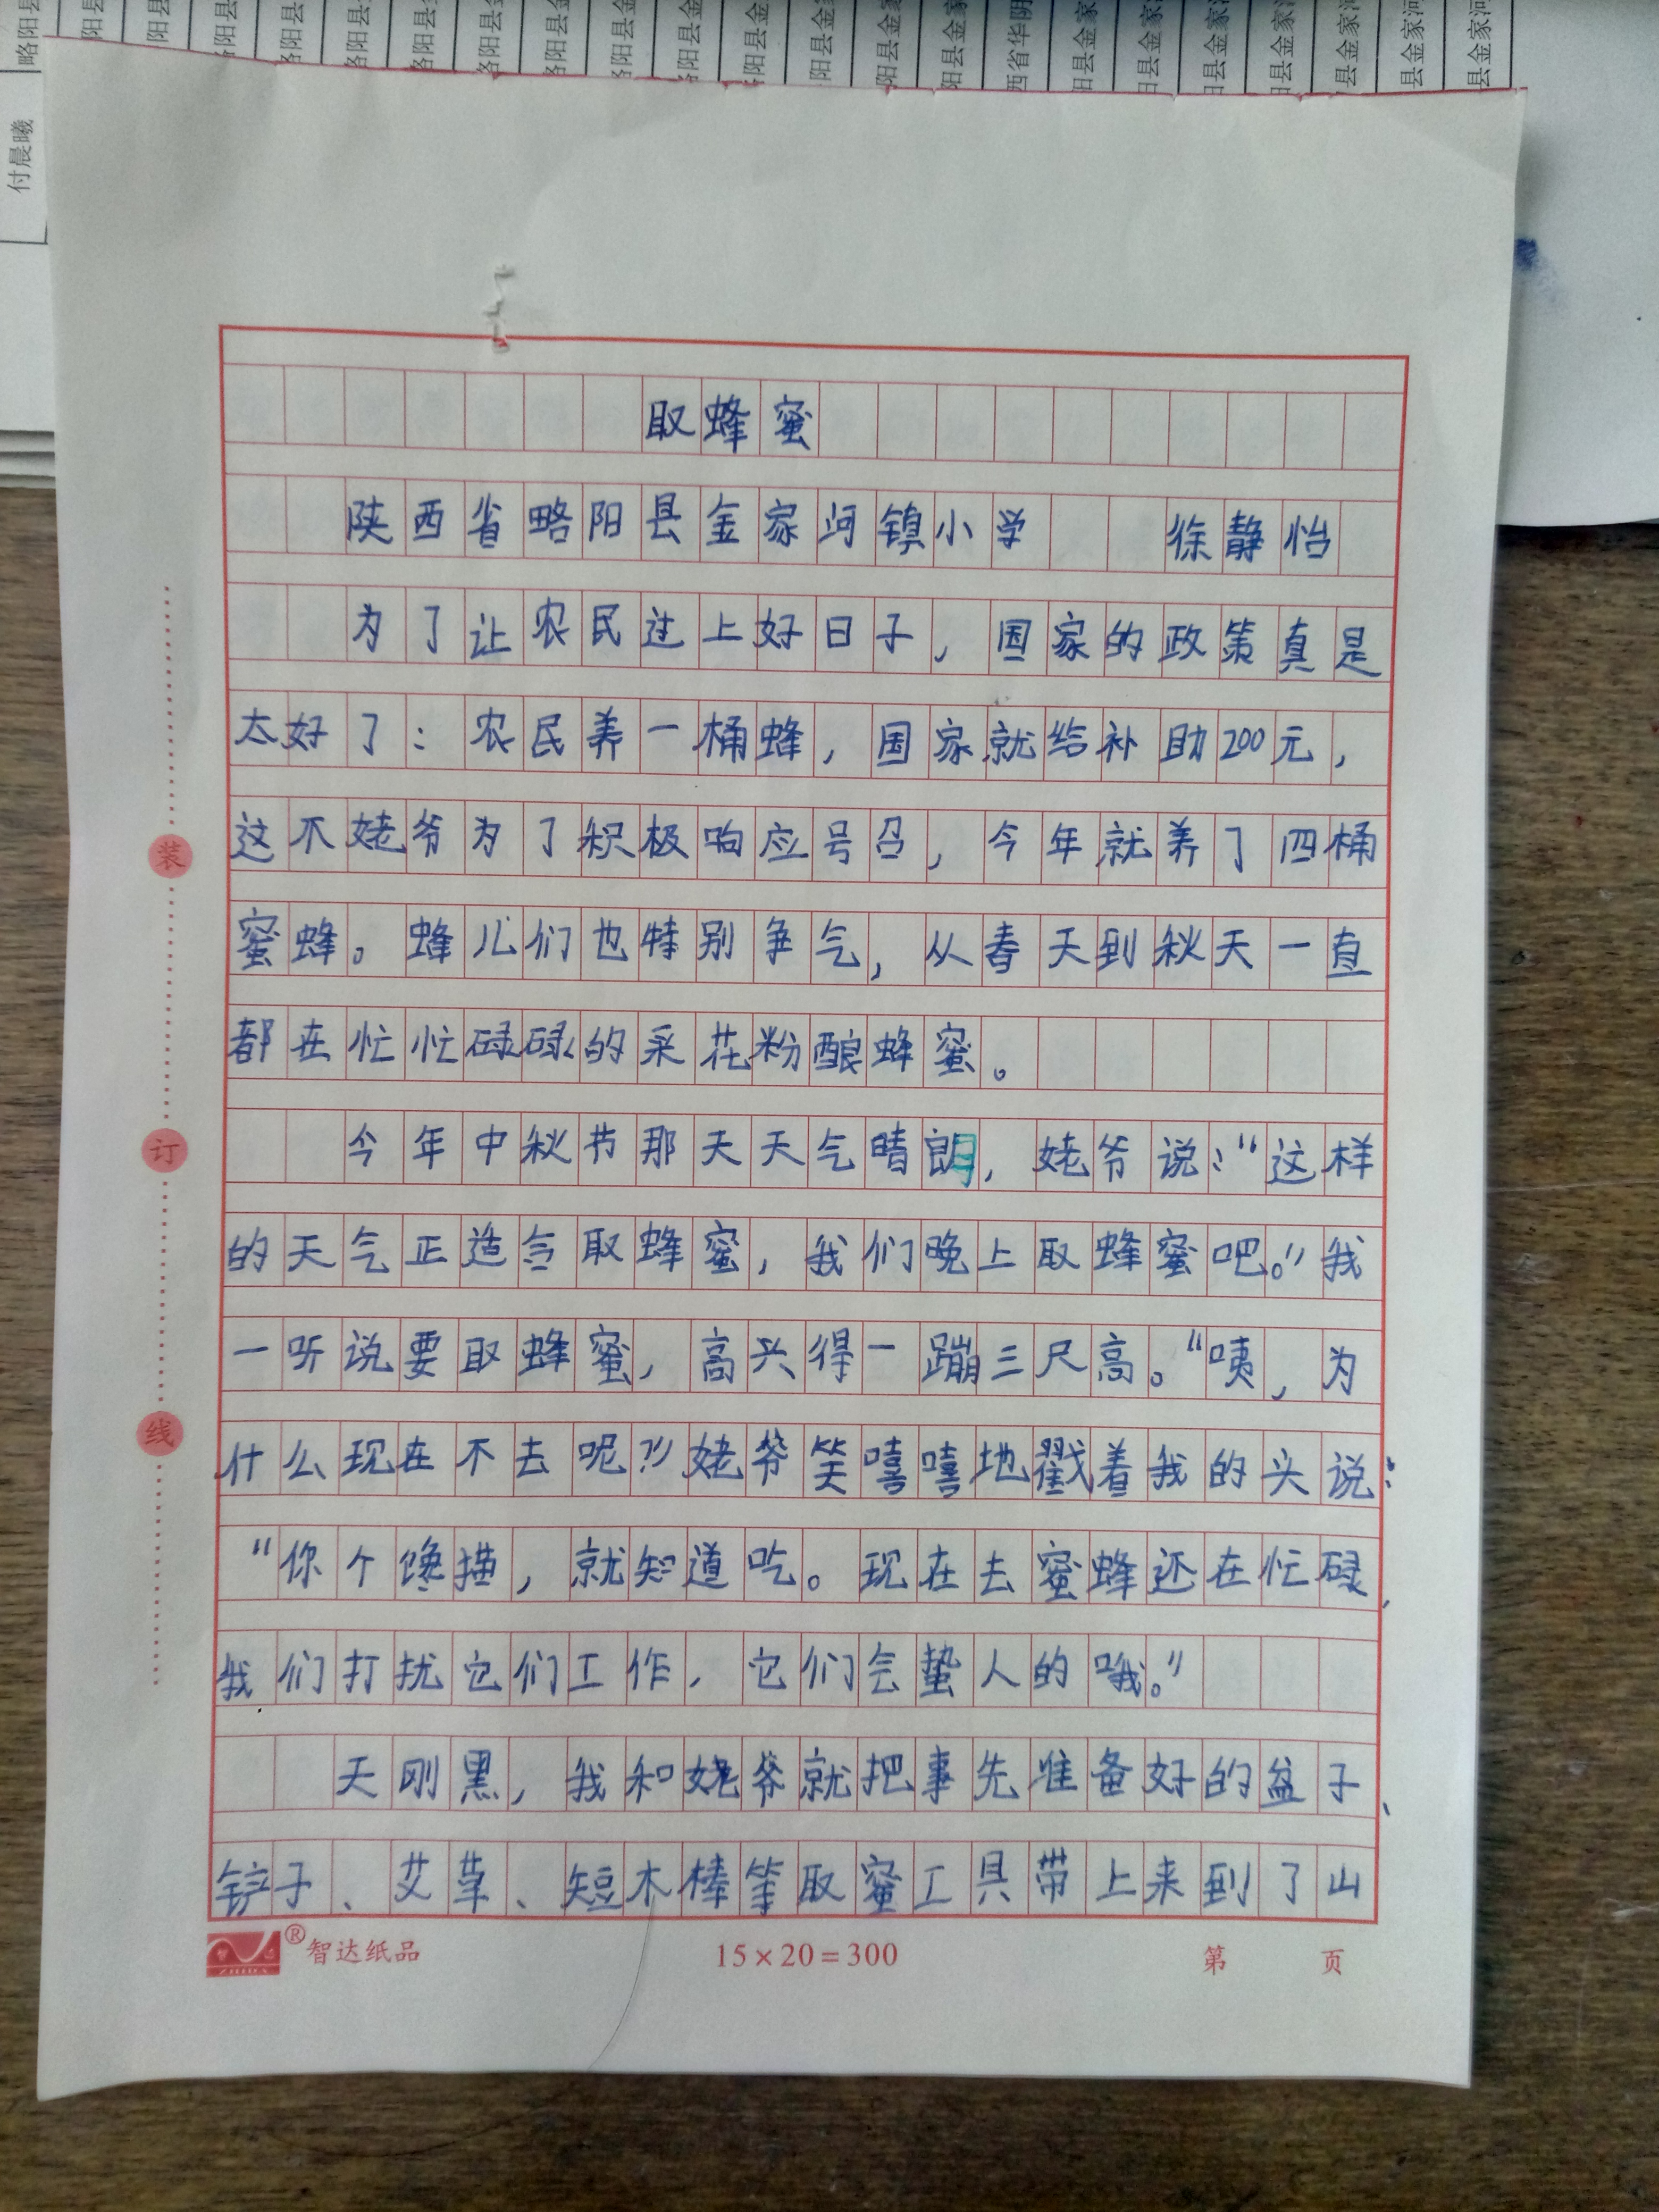 付晨曦
取蜂蜜
陕西省略阳县金家河镇小学 徐静怡
为了让农民过上好日子，国家的政策真是
太好了：农民养一桶蜂，国家就给补助200元，
这不姥爷为了积极响应号召，今年就养了四桶
蜜蜂。蜂儿们也特别争气，从春天到秋天一直
都在忙忙碌碌的采花粉酿蜂蜜。
今年中秋节那天天气晴朗，姥爷说：“这样
的天气正适合取蜂蜜，我们晚上取蜂蜜吧。”我
一听说要取蜂蜜，高兴得一蹦三尺高。“咦，为
什么现在不去呢？”姥爷笑嘻嘻地戳着我的头说：
“你个馋猫，就知道吃。现在去蜜蜂还在忙碌，
我们打扰它们工作，它们会蛰人的哦。”
天刚黑，我和姥爷就把事先准备好的盆子、
铲子、艾草、短木棒等取蜜工具带上来到了山
装
订
线
智达纸品 15×20=300 第 页